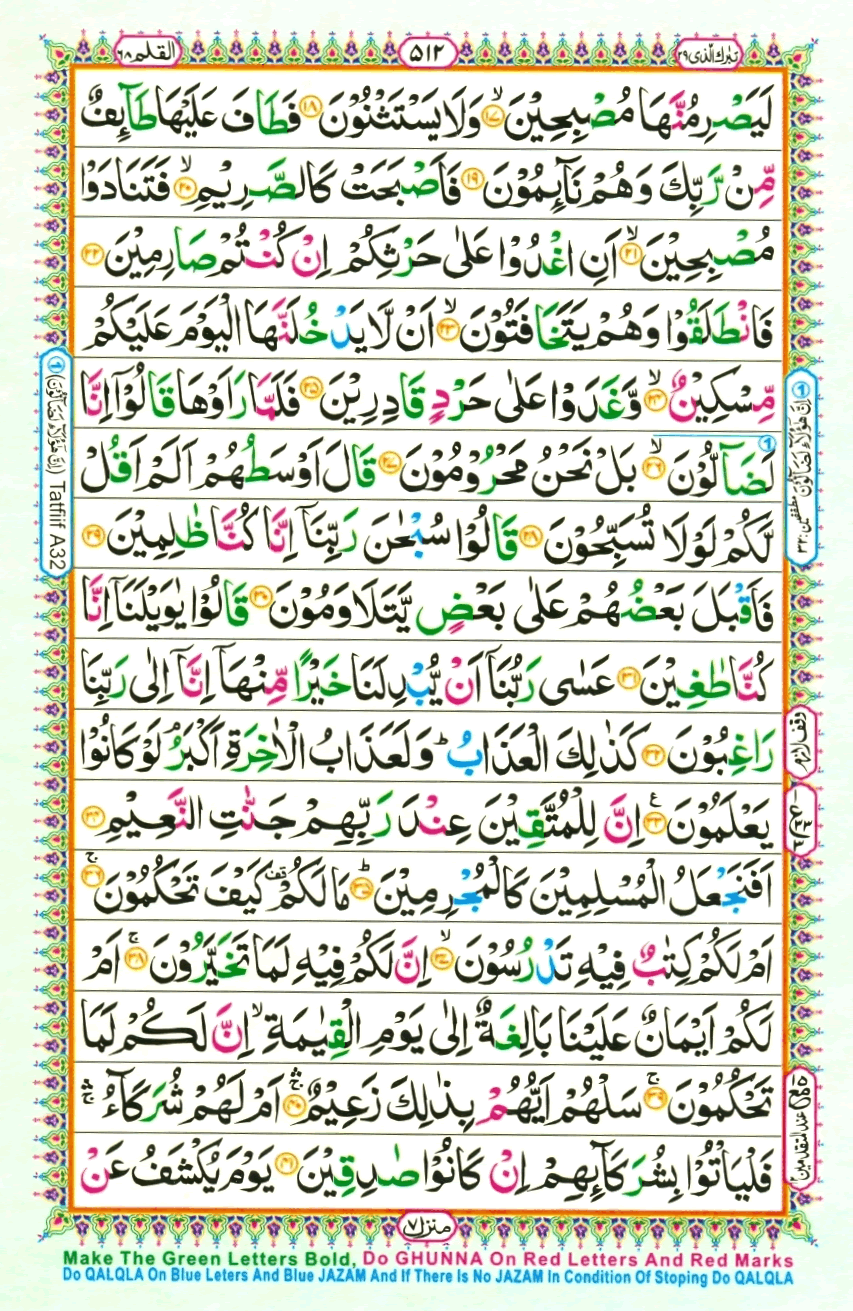 تبٰرك الّذى ۲۹
۵۱۲
القلم ۶۸
لَيَصْرِمُنَّهَا مُصْبِحِيْنَ ۙ﴿۱۷﴾ وَلَا يَسْتَثْنُوْنَ ﴿۱۸﴾ فَطَافَ عَلَيْهَا طَآئِفٌ
مِّنْ رَّبِّكَ وَهُمْ نَآئِمُوْنَ ﴿۱۹﴾ فَاَصْبَحَتْ كَالصَّرِيْمِ ۙ﴿۲۰﴾ فَتَنَادَوْا
مُصْبِحِيْنَ ۙ﴿۲۱﴾ اَنِ اغْدُوْا عَلٰى حَرْثِكُمْ اِنْ كُنْتُمْ صَارِمِيْنَ ﴿۲۲﴾
فَانْطَلَقُوْا وَهُمْ يَتَخَافَتُوْنَ ۙ﴿۲۳﴾ اَنْ لَّا يَدْخُلَنَّهَا الْيَوْمَ عَلَيْكُمْ
مِّسْكِيْنٌ ۙ﴿۲۴﴾ وَّغَدَوْا عَلٰى حَرْدٍ قَادِرِيْنَ ﴿۲۵﴾ فَلَمَّا رَاَوْهَا قَالُوْٓا اِنَّا
لَضَآلُّوْنَ ۙ﴿۲۶﴾ بَلْ نَحْنُ مَحْرُوْمُوْنَ ﴿۲۷﴾ قَالَ اَوْسَطُهُمْ اَلَمْ اَقُلْ
لَّكُمْ لَوْلَا تُسَبِّحُوْنَ ﴿۲۸﴾ قَالُوْا سُبْحٰنَ رَبِّنَآ اِنَّا كُنَّا ظٰلِمِيْنَ ﴿۲۹﴾
فَاَقْبَلَ بَعْضُهُمْ عَلٰى بَعْضٍ يَّتَلَاوَمُوْنَ ﴿۳۰﴾ قَالُوْا يٰوَيْلَنَآ اِنَّا
كُنَّا طٰغِيْنَ ﴿۳۱﴾ عَسٰى رَبُّنَآ اَنْ يُّبْدِلَنَا خَيْرًا مِّنْهَآ اِنَّآ اِلٰى رَبِّنَا
رَاغِبُوْنَ ﴿۳۲﴾ كَذٰلِكَ الْعَذَابُ ؕ وَلَعَذَابُ الْاٰخِرَةِ اَكْبَرُ لَوْ كَانُوْا
يَعْلَمُوْنَ ﴿۳۳﴾ اِنَّ لِلْمُتَّقِيْنَ عِنْدَ رَبِّهِمْ جَنّٰتِ النَّعِيْمِ ﴿۳۴﴾
اَفَنَجْعَلُ الْمُسْلِمِيْنَ كَالْمُجْرِمِيْنَ ؕ﴿۳۵﴾ مَا لَكُمْ ࣞ كَيْفَ تَحْكُمُوْنَ ۚ﴿۳۶﴾
اَمْ لَكُمْ كِتٰبٌ فِيْهِ تَدْرُسُوْنَ ۙ﴿۳۷﴾ اِنَّ لَكُمْ فِيْهِ لَمَا تَخَيَّرُوْنَ ۚ﴿۳۸﴾ اَمْ
لَكُمْ اَيْمَانٌ عَلَيْنَا بَالِغَةٌ اِلٰى يَوْمِ الْقِيٰمَةِ ۙ اِنَّ لَكُمْ لَمَا
تَحْكُمُوْنَ ۚ﴿۳۹﴾ سَلْهُمْ اَيُّهُمْ بِذٰلِكَ زَعِيْمٌ ۚۛ﴿۴۰﴾ اَمْ لَهُمْ شُرَكَآءُ ۚۛ
فَلْيَاْتُوْا بِشُرَكَآئِهِمْ اِنْ كَانُوْا صٰدِقِيْنَ ﴿۴۱﴾ يَوْمَ يُكْشَفُ عَنْ
① اِنَّ هٰٓؤُلَآءِ لَضَآلُّوْنَ مطففين: ۳۲
① (اِنَّ هٰٓؤُلَآءِ لَضَآلُّوْنَ) Tatfiif A32
وقف لازم
عند المتقدمين
منزل ۷
Make The Green Letters Bold, Do GHUNNA On Red Letters And Red Marks
Do QALQLA On Blue Leters And Blue JAZAM And If There Is No JAZAM In Condition Of Stoping Do QALQLA